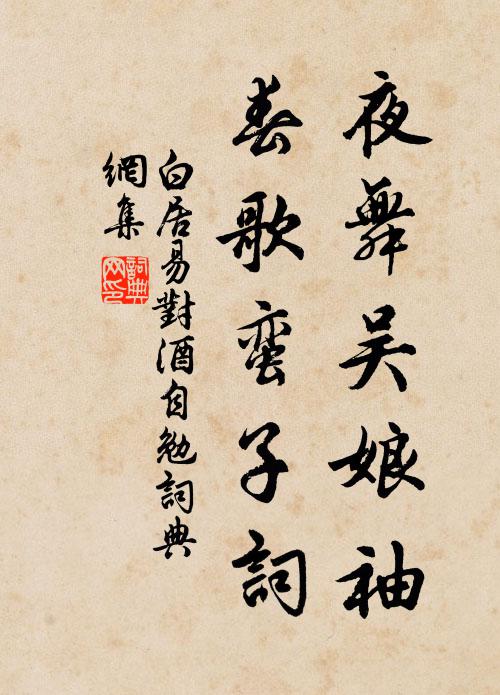 夜舞吴娘袖
春歌蛮子詞
白居易對酒自勉詞典
網集
詞典網印